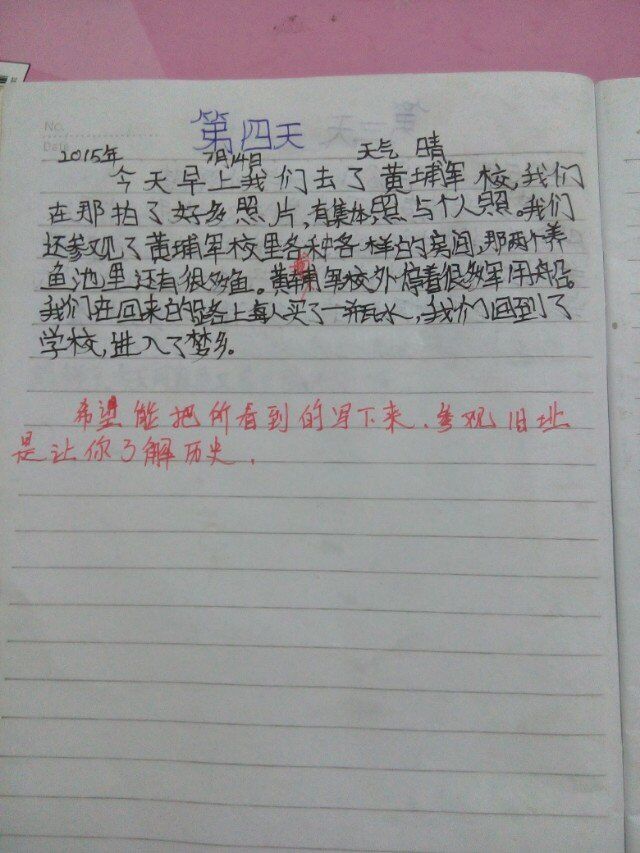 No.
Date
第四天
2015年 7月14日 天气 晴
今天早上我们去了黄埔军校,我们
在那拍了好多照片,有集体照与个人照。我们
还参观了黄埔军校里各种各样的房间,那两个养
鱼池里还有很多鱼。黄埔军校外停着很多军用船。
我们在回来的路上每人买了一瓶水,我们回到了
学校,进入了梦乡。
希望能把所看到的写下来,参观旧址
是让你了解历史,